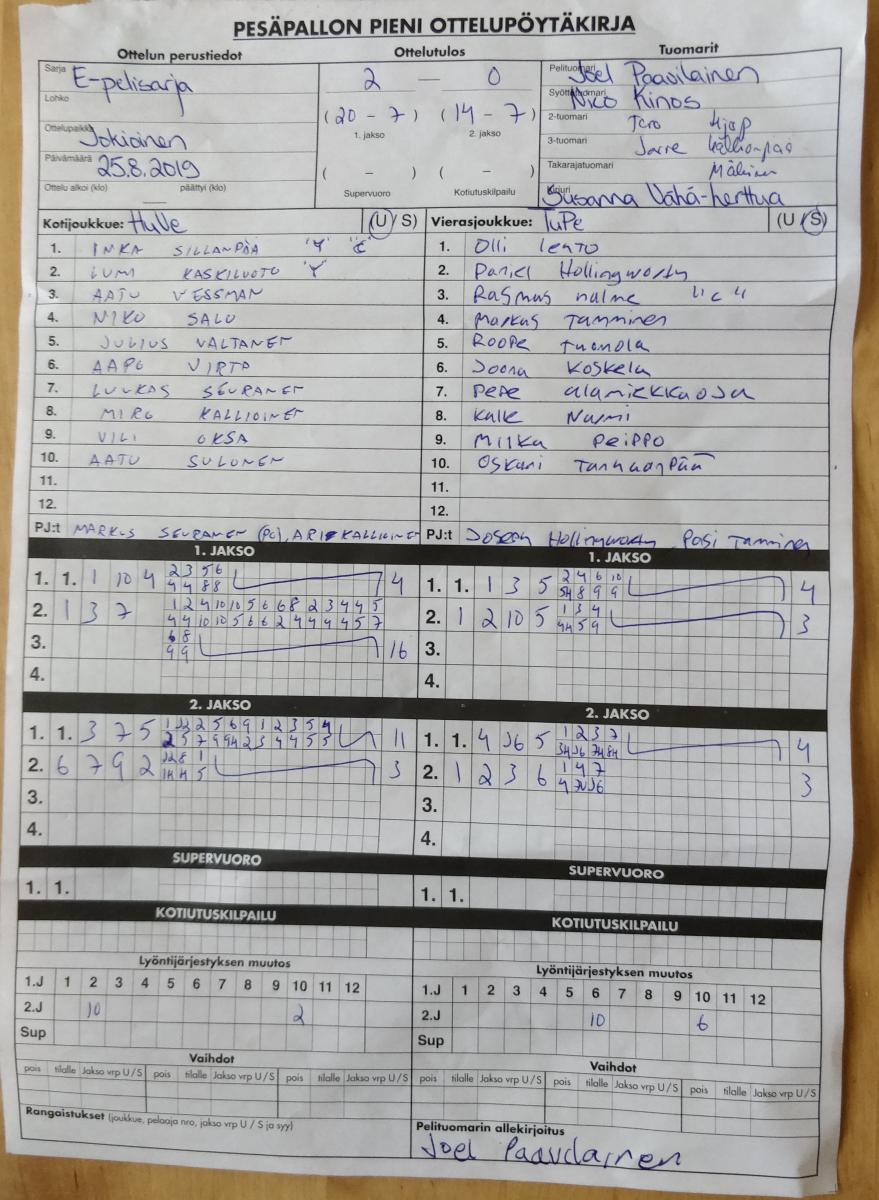 PESÄPALLON PIENI OTTELUPÖYTÄKIRJA
Ottelun perustiedot
Sarja E-pelisarja
Lohko
Ottelupaikka Jokioinen
Päivämäärä 25.8.2019
Ottelu alkoi (klo) päättyi (klo)
Ottelutulos
2 — 0
(20 - 7) (14 - 7)
1. jakso 2. jakso
( - ) ( - )
Supervuoro Kotiutuskilpailu
Tuomarit
Pelituomari Joel Paavilainen
Syöttötuomari Nico Kinos
2-tuomari Tero
3-tuomari Jarre
Takarajatuomari
Kirjuri Susanna Vähä-herttua
Kotijoukkue: HuVe (U / S)
1. INKA SILLANPÄÄ "Y" "C"
2. LUMI KASKILUOTO "Y"
3. AATU VESSMAN
4. NIKO SALO
5. JULIUS VALTANEN
6. AAPO VIRTA
7. LUUKAS SEURANEN
8. MIRO KALLIOINEN
9. VILI OKSA
10. AATU SULONEN
11.
12.
PJ:t MARKUS SEURANEN (PJ), ARI KALLIOINEN
Vierasjoukkue: TuPe (U / S)
1. Olli lehto
2. Daniel Hollingworth
3. Rasmus nalme "c"
4. Markus Tamminen
5. Roope Tuomola
6. Joona Koskela
7. Pepe alamikkaoja
8. Kalle Nurmi
9. Miika Peippo
10. Oskari Tanhuanpää
11.
12.
PJ:t Joseph Hollingworth Pasi Tamminen
1. JAKSO
1. 1. 1 10 4 2 3 5 6 4
4 4 8 8
2. 1 3 7 1 2 4 10 10 5 6 6 8 2 3 4 4 5
4 4 10 10 5 6 6 2 4 4 4 4 5 7
3. 6 8 16
9 9
4.
1. JAKSO
1. 1. 1 3 5 2 4 6 10 4
8 9 9
2. 1 2 10 5 1 3 4 3
4 4 5 9
3.
4.
2. JAKSO
1. 1. 3 7 5 11
2. 6 7 9 2 3
3.
4.
2. JAKSO
1. 1. 4 J6 5 1 2 3 7 4
2. 1 2 3 6 1 4 7 3
3.
4.
SUPERVUORO
1. 1.
SUPERVUORO
1. 1.
KOTIUTUSKILPAILU
KOTIUTUSKILPAILU
Lyöntijärjestyksen muutos
1.J 1 2 3 4 5 6 7 8 9 10 11 12
2.J 10 2
Sup
Lyöntijärjestyksen muutos
1.J 1 2 3 4 5 6 7 8 9 10 11 12
2.J 10 6
Sup
Vaihdot
pois tilalle Jakso vrp U / S pois tilalle Jakso vrp U / S pois tilalle Jakso vrp U / S
Vaihdot
pois tilalle Jakso vrp U / S pois tilalle Jakso vrp U / S pois tilalle Jakso vrp U / S
Rangaistukset (joukkue, pelaaja nro, jakso vrp U / S ja syy)
Pelituomarin allekirjoitus
Joel Paavilainen